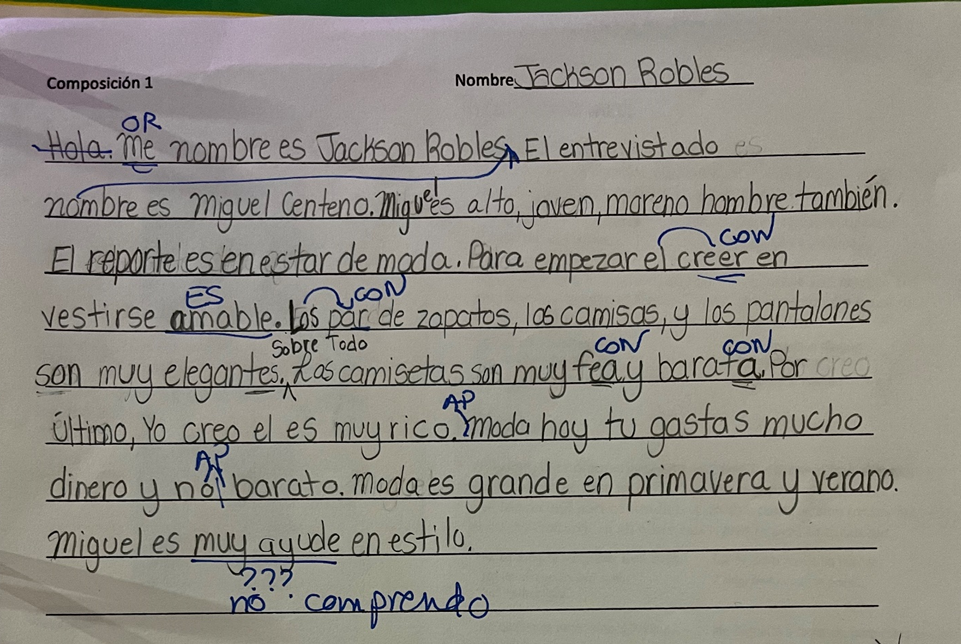 Composición 1 Nombre Jackson Robles
OR
Hola. Me nombre es Jackson Robles, El entrevistado es
nombre es Miguel Centeno. Miguel es alto, joven, moreno hombre también.
CON
El reporte es en estar de moda. Para empezar el creer en
ES CON
vestirse amable. Los par de zapatos, los camisas, y los pantalones
Sobre Todo CON CON
son muy elegantes, Las camisetas son muy fea y barata. Por creo
AP
último, Yo creo el es muy rico. Moda hoy tu gastas mucho
AP
dinero y no barato. Moda es grande en primavera y verano.
Miguel es muy ayude en estilo.
???
no comprendo